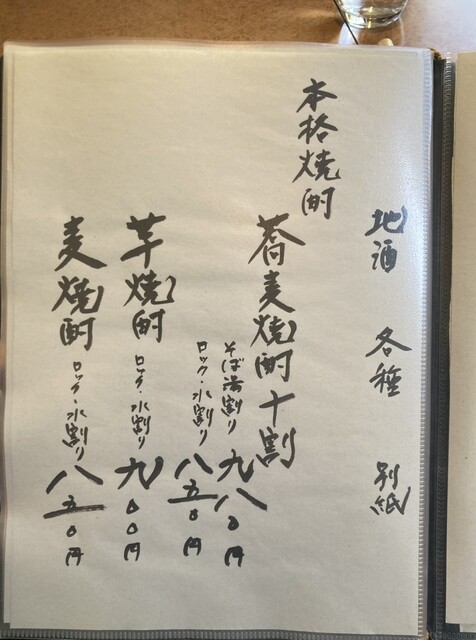 地酒 各種 別紙
本格焼酎
蕎麦焼酎十割
そば湯割り 九八〇円
ロック・水割り 八五〇円
芋焼酎 ロック・水割り 九〇〇円
麦焼酎 ロック・水割り 八五〇円